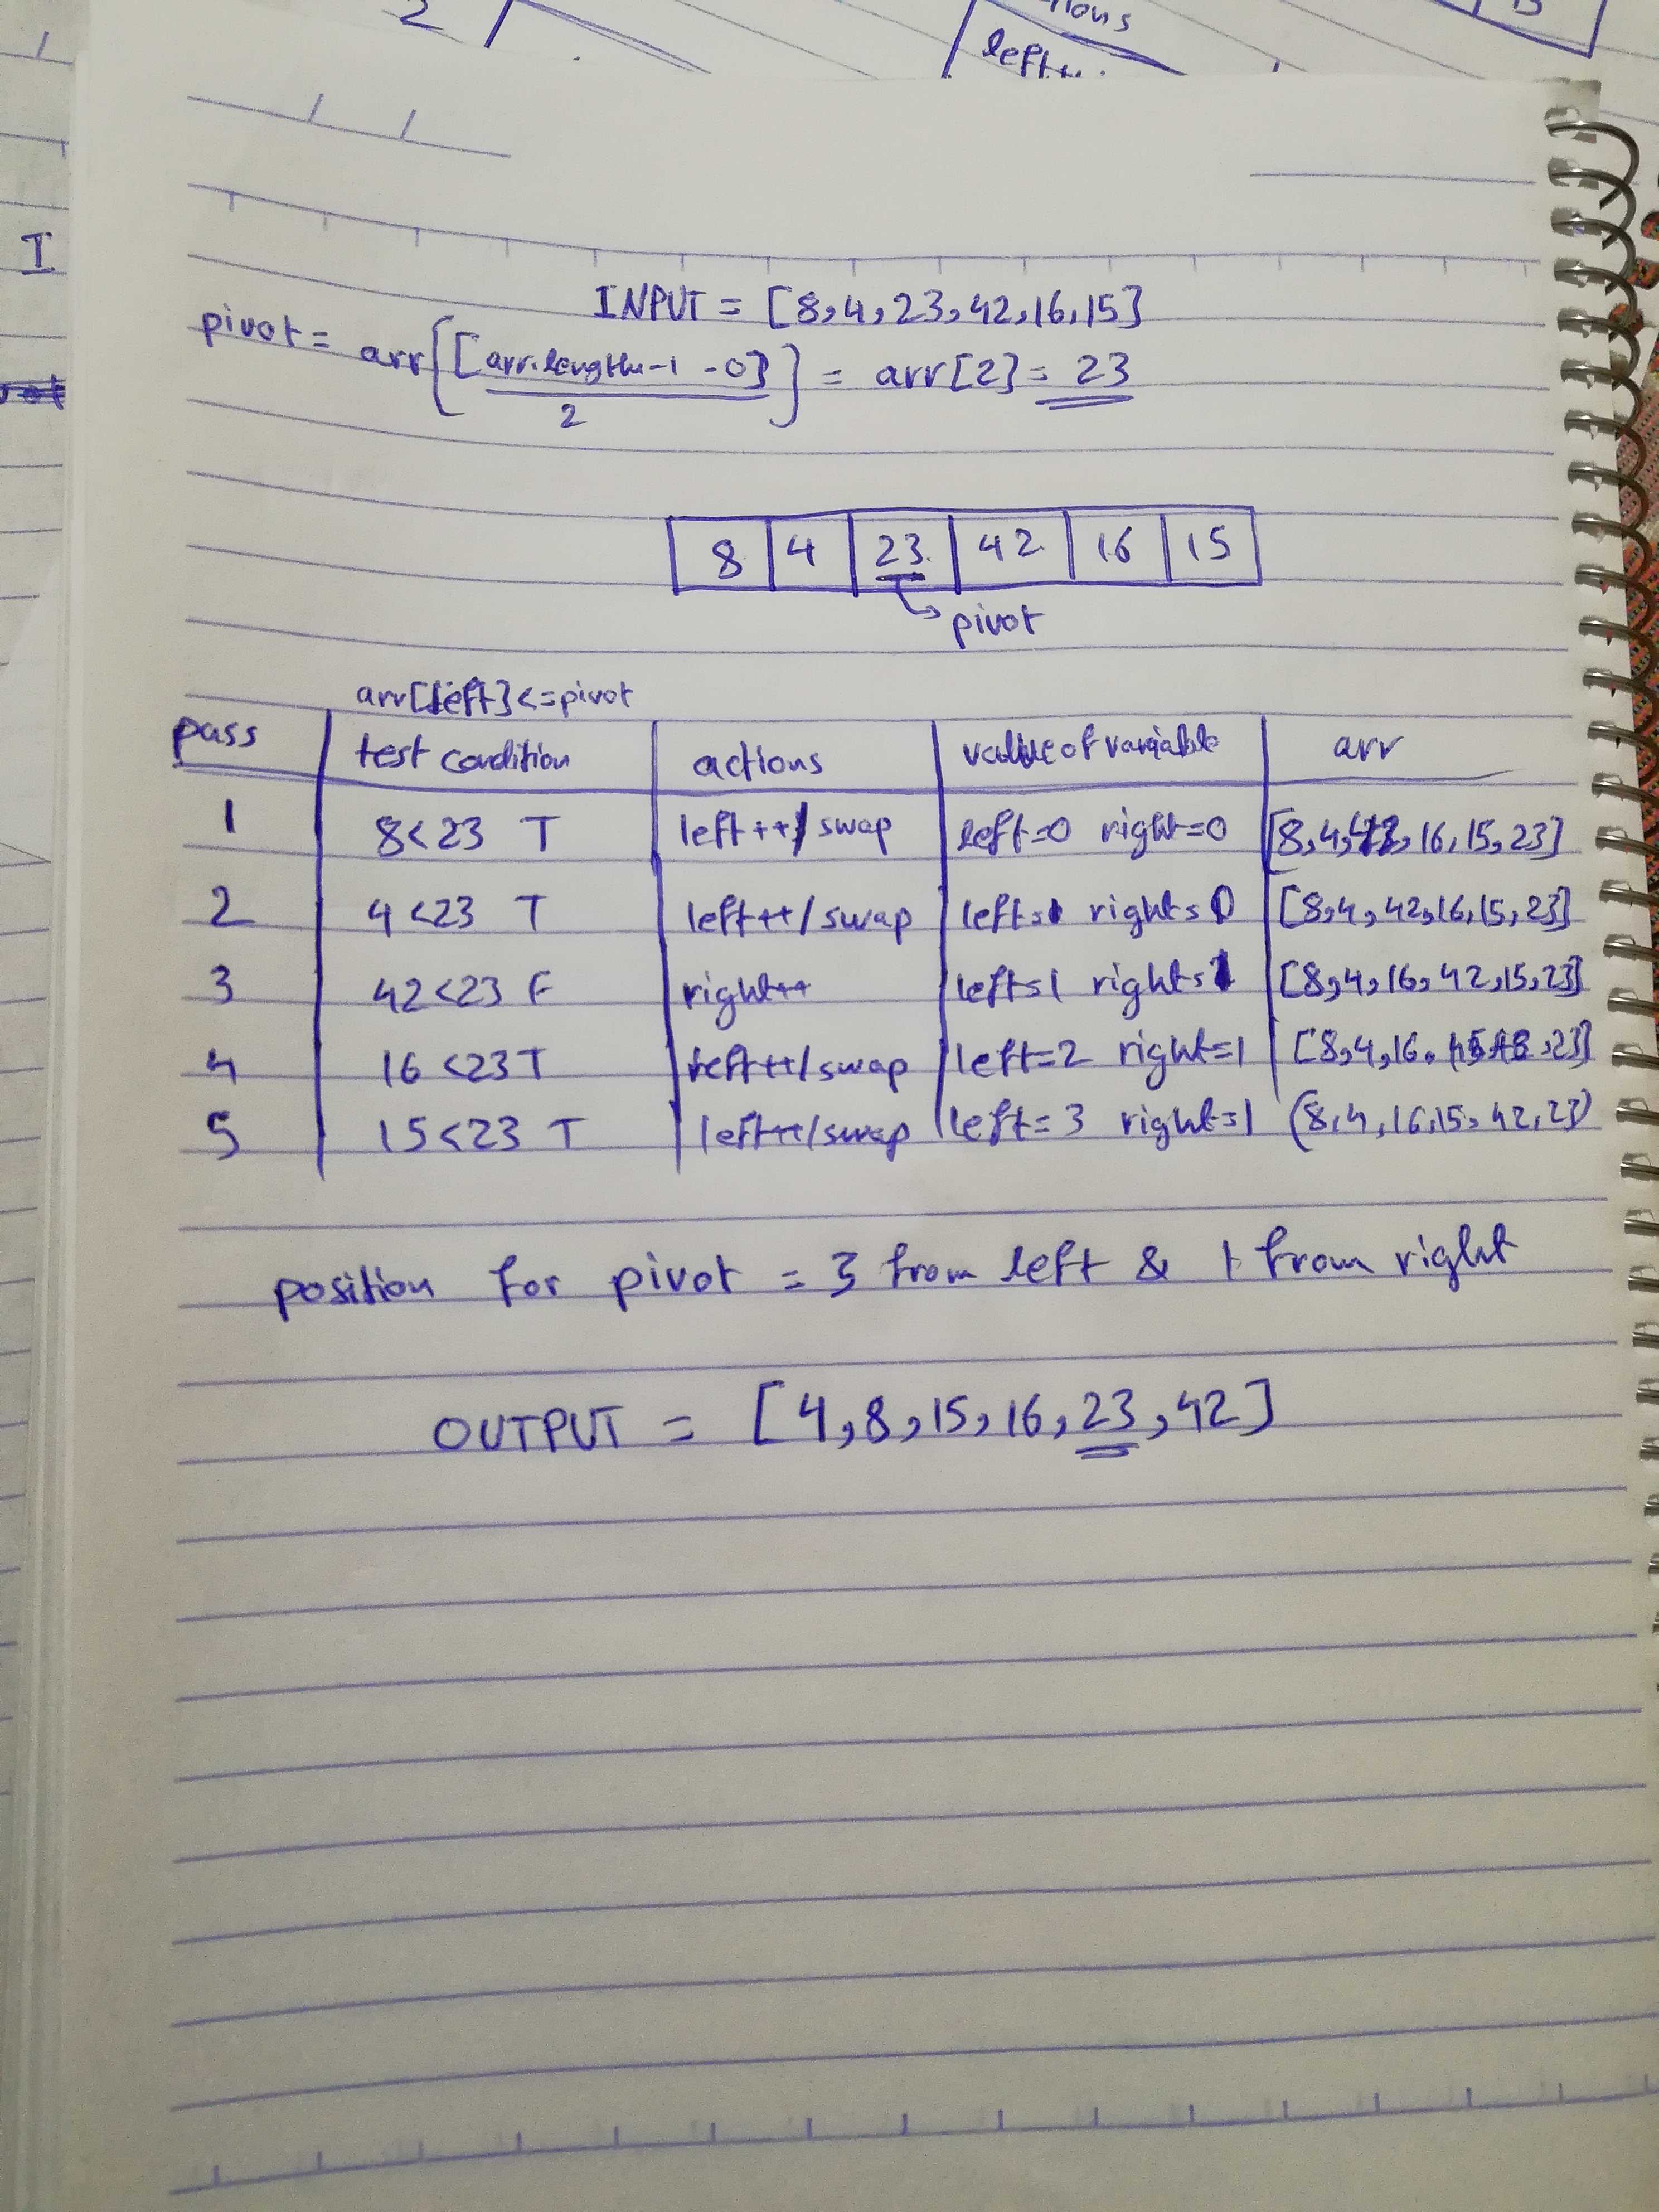 2
ions
left++
I
INPUT = [8,4,23,42,16,15]
pivot = arr[[arr.length-1-0]/2] = arr[2] = 23
8 4 23 42 16 15
pivot
arr[left]<=pivot
pass test condition actions value of variable arr
1 8<23 T left++/swap left=0 right=0 [8,4,42,16,15,23]
2 4<23 T left++/swap left=1 right=0 [8,4,42,16,15,23]
3 42<23 F right++ left=1 right=1 [8,4,16,42,15,23]
4 16<23 T left++/swap left=2 right=1 [8,4,16, ,23]
5 15<23 T left++/swap left=3 right=1 (8,4,16,15,42,23)
position for pivot = 3 from left & 1 from right
OUTPUT = [4,8,15,16,23,42]